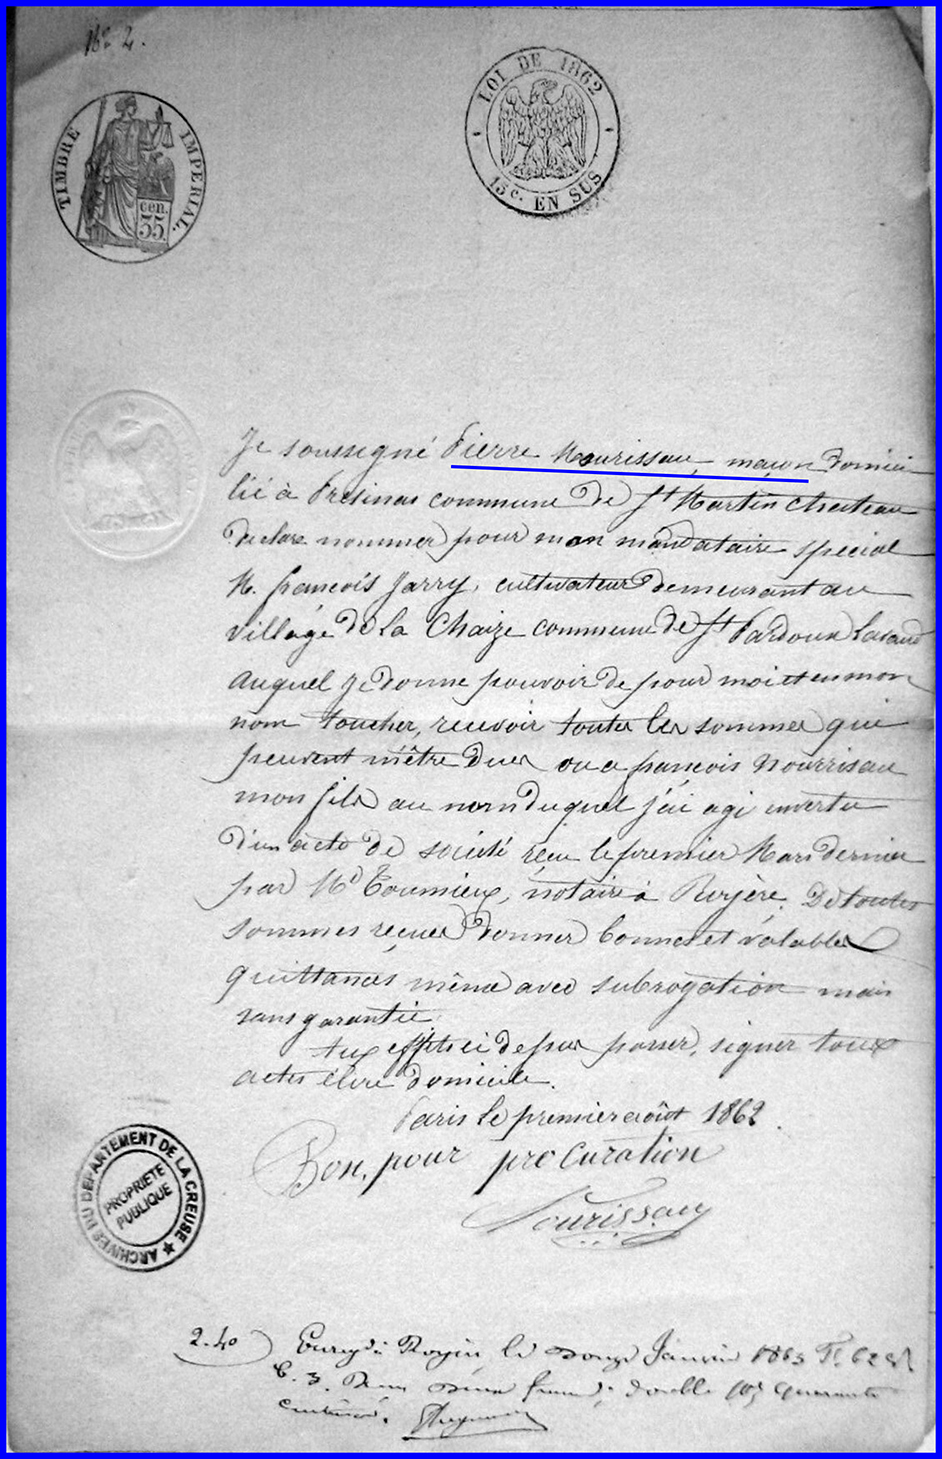 N° 2.
TIMBRE IMPÉRIAL.
cen. 35.
LOI DE 1862
15 c. EN SUS
Je soussigné Pierre Nourissau, maçon domici
lié à Présinas commune de St Martin Chateau
declare nommer pour mon mandataire special
M. françois Jarry, cultivateur demeurant au
village de la Chaize commune de St Pardoux Lavaud
auquel je donne pouvoir de pour moi et en mon
nom toucher, recevoir toutes les sommes qui
peuvent m'être dues ou a françois Nourrisau
mon fils au nom duquel j'ai agi en vertu
d'un acte de société reçu le premier Mars dernier
par Me Toumieux, notaire à Royère. De toutes
sommes reçues donner bonnes et valables
quittances même avec subrogation mais
sans garantie
Aux effets ci dessus passer, signer tous
actes élire domicile.
Paris le premier août 1862.
Bon pour procuration
Nourissau
ARCHIVES DU DÉPARTEMENT DE LA CREUSE
PROPRIÉTÉ PUBLIQUE
2.40 Enreg. à Royère le douze Janvier 1863 F°. 62
C. 3. deux francs double quarante
centimes.